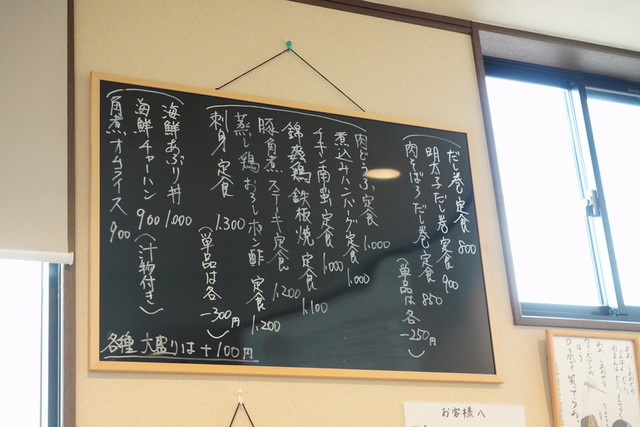 だし巻定食 800
明太子だし巻定食 900
肉そぼろだし巻定食 850
(単品は各-250円)
肉どうふ定食 1.000
煮込みハンバーグ定食 1.000
チキン南蛮定食 1.000
錦爽鶏鉄板焼定食 1.100
豚角煮ステーキ定食 1.200
蒸し鶏おろしポン酢定食 1.200
刺身定食 1.300
(単品は各-300円)
海鮮あぶり丼 1.000
海鮮チャーハン 900
角煮オムライス 900
(汁物付き)
各種大盛りは+100円
お客様へ